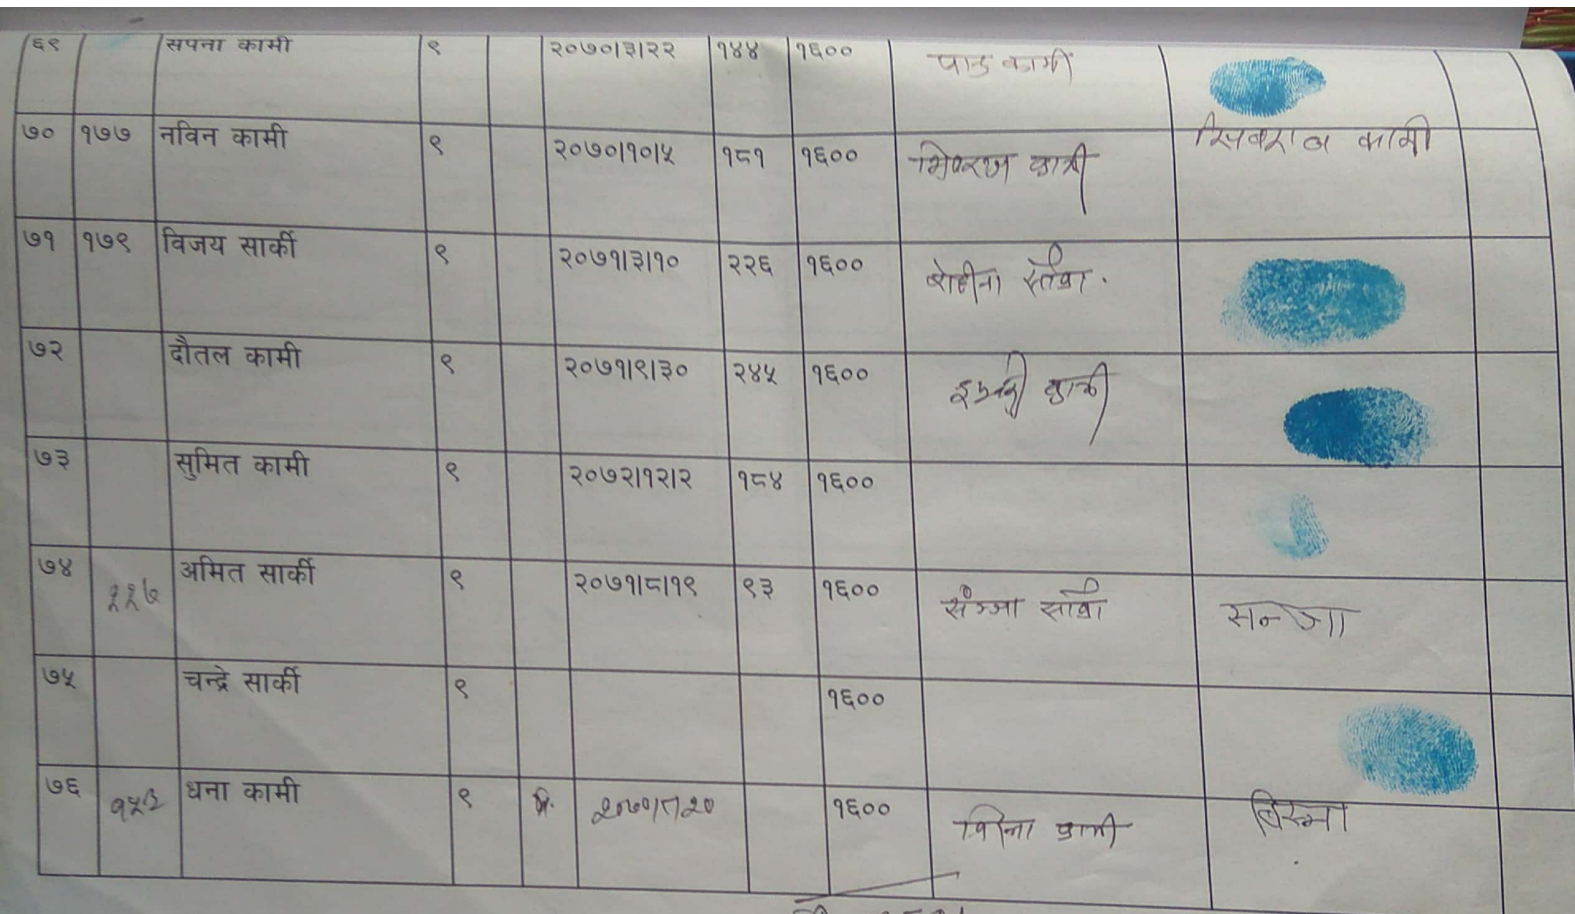 ६९ सपना कामी ९ २०७०।३।२२ १४४ १६०० पाड कामी
७० १७७ नविन कामी ९ २०७०।१०।५ १८१ १६०० कामी
७१ १७९ विजय सार्की ९ २०७१।३।१० २२६ १६००
७२ दौतल कामी ९ २०७१।९।३० २४५ १६००
७३ सुमित कामी ९ २०७२।१२।२ १८४ १६००
७४ २२७ अमित सार्की ९ २०७१।८।१९ ९३ १६०० सन्जा
७५ चन्द्रे सार्की ९ १६००
७६ १५३ धना कामी ९ २०७०।८।२० १६००